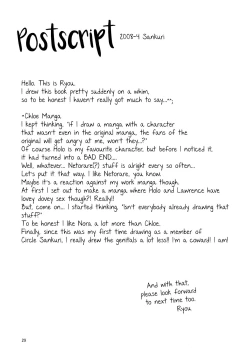 Postscript
2008-4 Sankuri
Hello, This is Ryou,
I drew this book pretty suddenly on a whim,
so to be honest I haven't really got much to say...~;
~Chloe Manga
I kept thinking, "if I draw a manga with a character
that wasn't even in the original manga... the fans of the
original will get angry at me, won't they...?"
Of course Holo is my favourite character, but before I noticed it,
it had turned into a BAD END....
Well, whatever... Netorare(?) stuff is alright every so often...
Let's put it that way. I like Netorare, you know.
Maybe it's a reaction against my work manga though.
At first I set out to make a manga where Holo and Lawrence have
lovey dovey sex though?! Really!!
But, come on... I started thinking, "Isn't everybody already drawing that
stuff?"
To be honest I like Nora a lot more than Chloe.
Finally, since this was my first time drawing as a member of
Circle Sankuri, I really drew the genitals a lot less! I'm a coward! I am!
And with that,
please look forward
to next time too.
Ryou